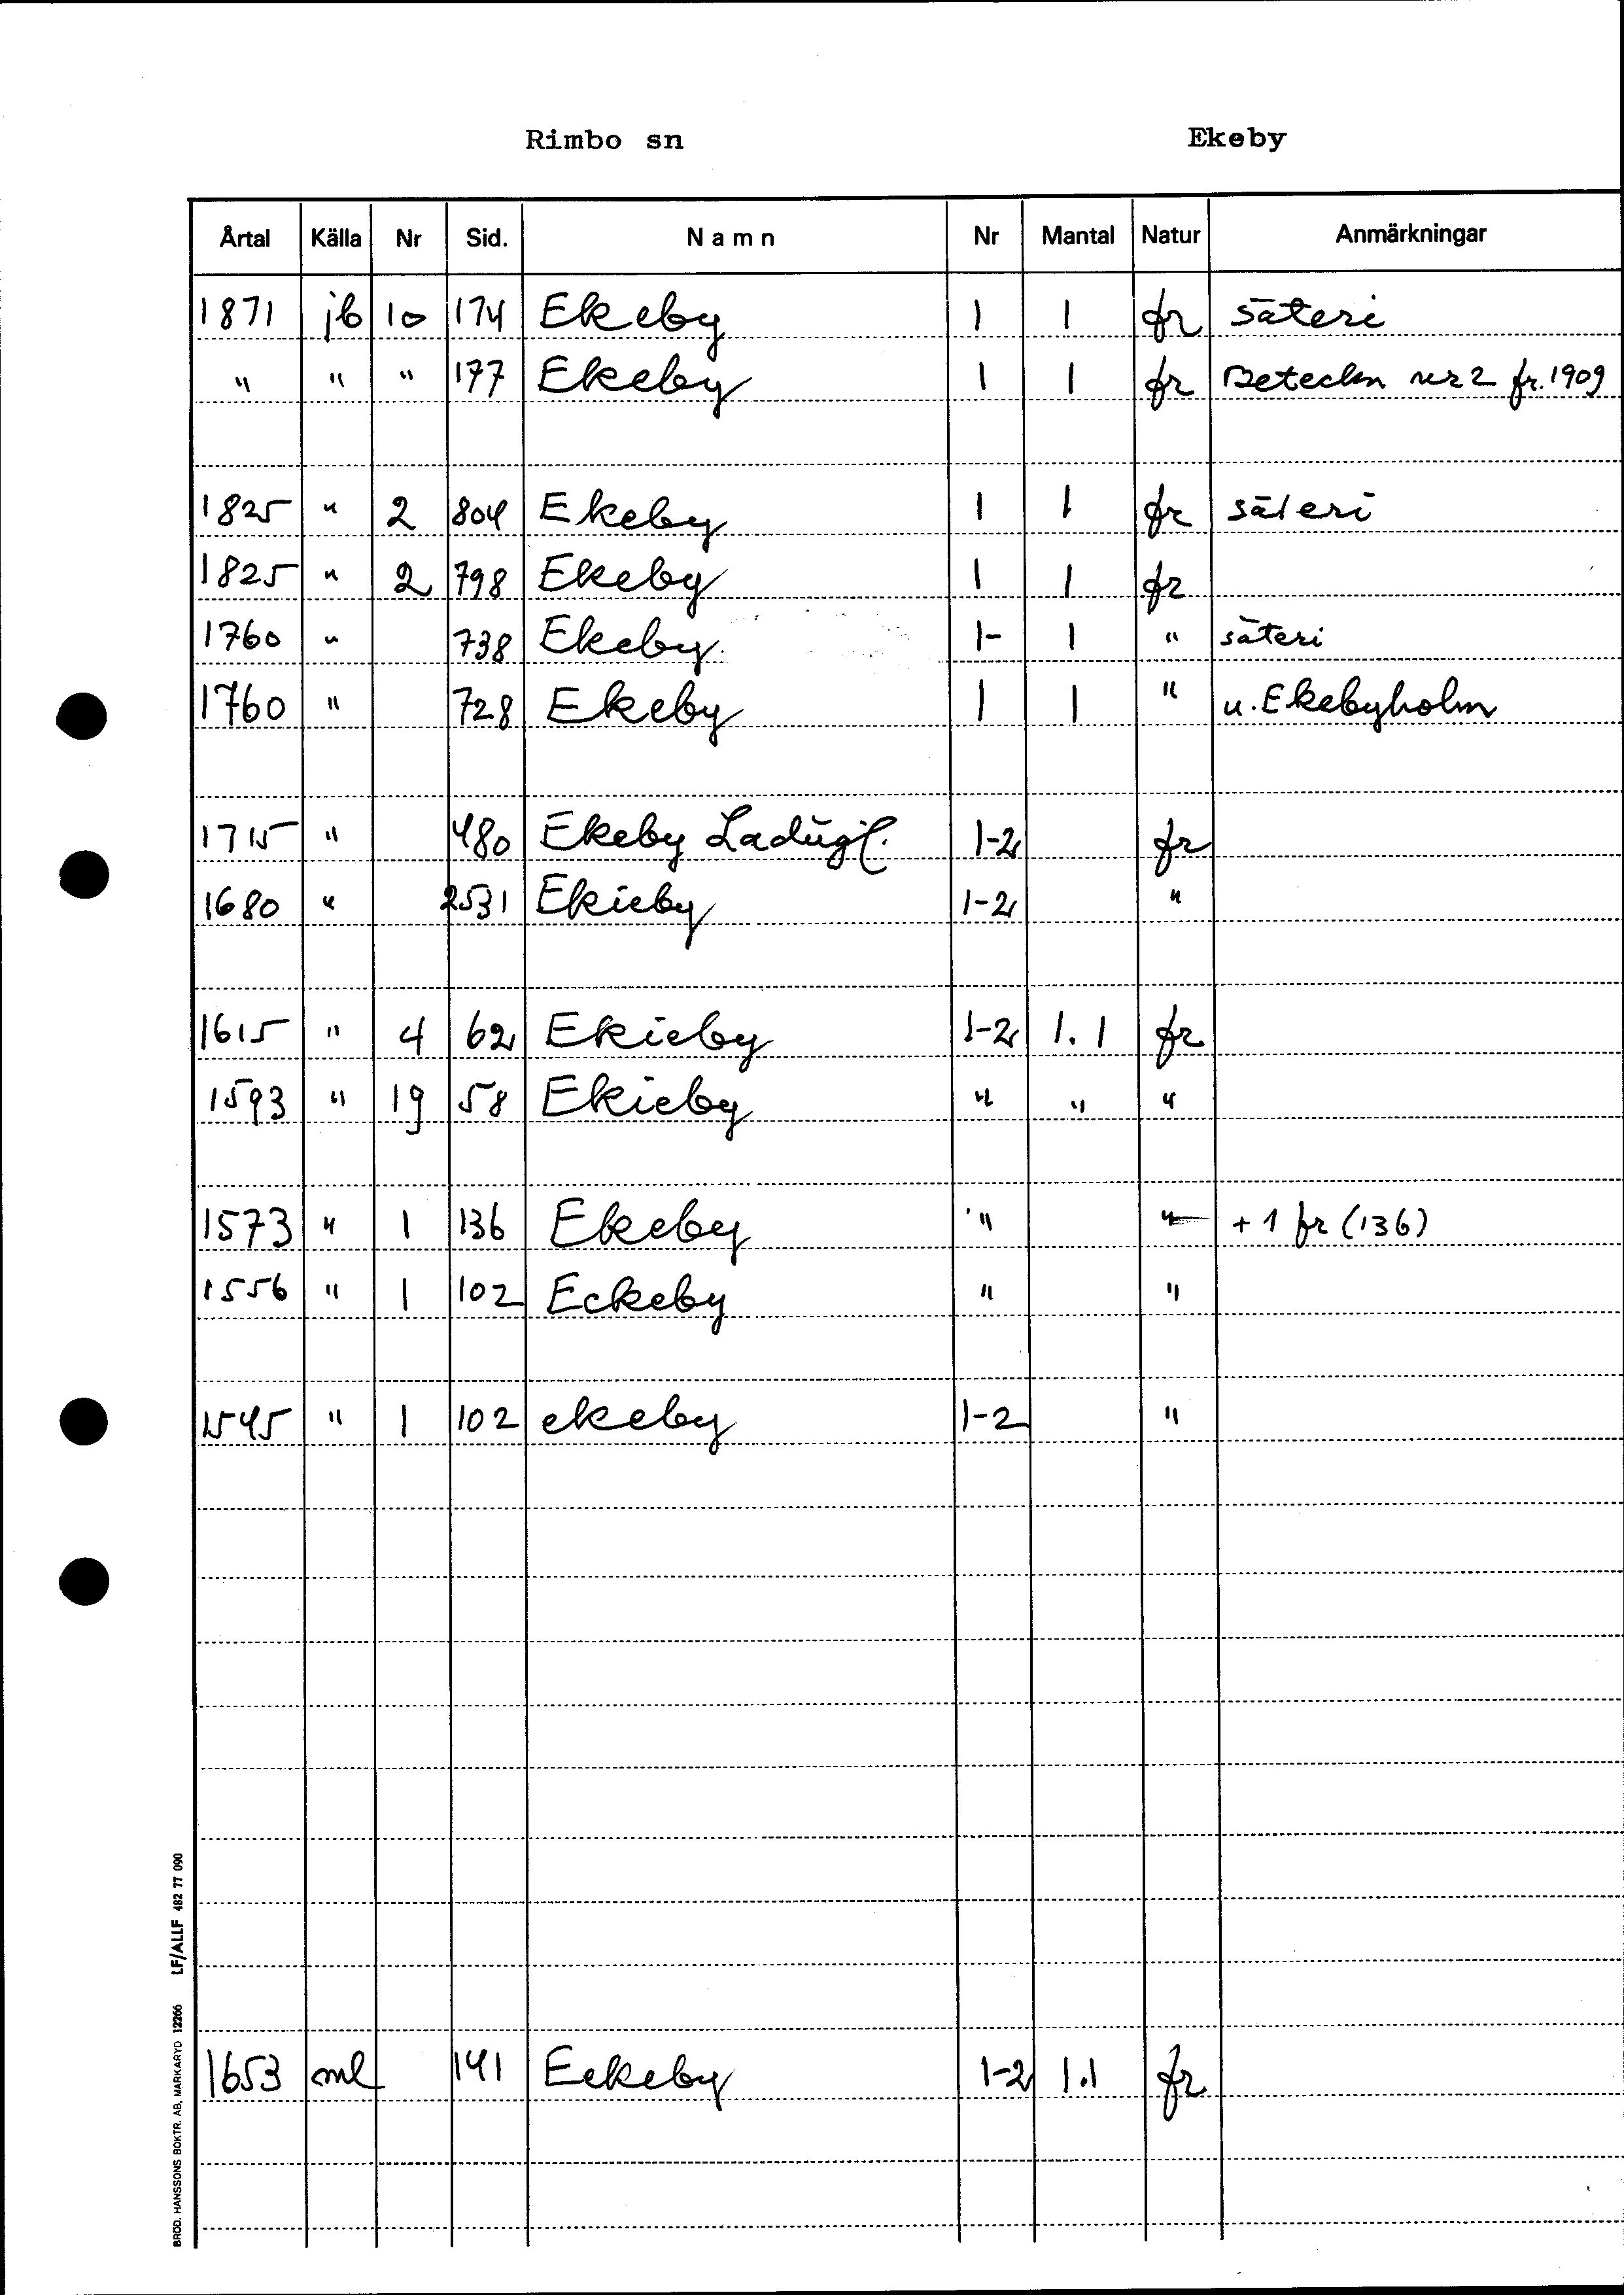 Rimbo sn Ekeby
Årtal Källa Nr Sid. Namn Nr Mantal Natur Anmärkningar
1871 jb 10 174 Ekeby 1 1 fr säteri
" " " 177 Ekeby 1 1 fr Beteckn nr 2 fr. 1909
1825 " 2 804 Ekeby 1 1 fr säteri
1825 " 2 798 Ekeby 1 1 fr
1760 " 738 Ekeby 1- 1 " säteri
1760 " 728 Ekeby 1 1 " u. Ekebyholm
1715 " 480 Ekeby Ladug 1-2 fr
1680 " 2531 Ekieby 1-2 "
1615 " 4 62 Ekieby 1-2 1.1 fr
1593 " 19 58 Ekieby " " "
1573 " 1 136 Ekeby " " + 1 fr (136)
1556 " 1 102 Eckeby " "
1545 " 1 102 ekeby 1-2 "
1653 ml 141 Eekeby 1-2 1.1 fr
BRÖD. HANSSONS BOKTR. AB, MARKARYD 12266 LF/ALLF 482 77 090